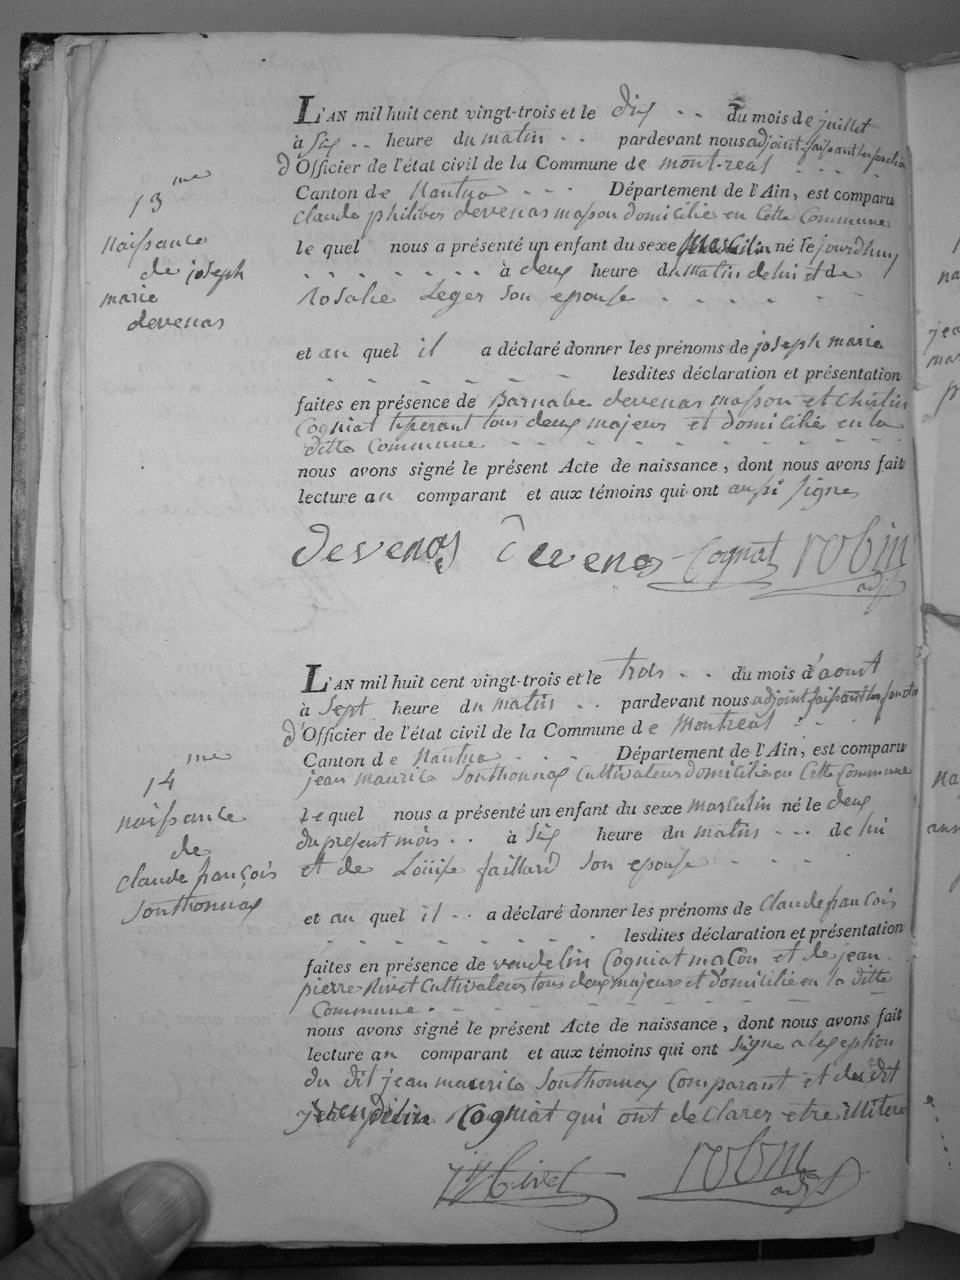 13 me
naissance
de joseph
marie
devenas
L'AN mil huit cent vingt-trois et le dix .. du mois de juillet
à six .. heure du matin .. pardevant nous adjoint faisant les fonctions
d'Officier de l'état civil de la Commune de montreal ....
Canton de Nantua - - - Département de l'Ain, est comparu
claude philiber devenas masson domicilié en cette Commune
le quel nous a présenté un enfant du sexe Masculin né le jourdhuy
. . . . . . . à deux heure du matin de lui et de
Rosalie Leger son epouse - - - - - -
et au quel il a déclaré donner les prénoms de joseph marie
- - - - - - lesdites déclaration et présentation
faites en présence de Barnabe devenas masson et
Cogniat tisserant tous deux majeurs et domicilié en la
ditte Commune - - - - - - - -
nous avons signé le présent Acte de naissance, dont nous avons fait
lecture au comparant et aux témoins qui ont aussi signes
devenas devenas Cogniat robin
adj
14 me
naissance
de
claude françois
Sonthonnax
L'AN mil huit cent vingt-trois et le trois .. du mois d'aoust
à sept heure du matin .. pardevant nous adjoint faisant les fonctions
d'Officier de l'état civil de la Commune de Montreal : - .
Canton de Nantua - - - Département de l'Ain, est comparu
jean maurice Sonthonnax Cultivateur domicilié en Cette Commune
le quel nous a présenté un enfant du sexe masculin né le deux
du present mois .. à six heure du matin - - - de lui
et de Louise faillard son epouse - - - -
et au quel il - - a déclaré donner les prénoms de Claude francois
- - - - - - - lesdites déclaration et présentation
faites en présence de vendelin Cogniat maçon et de jean
pierre Rivet Cultivateur tous deux majeurs et domicilié en la ditte
Commune . - - - - - - - -
nous avons signé le présent Acte de naissance, dont nous avons fait
lecture au comparant et aux témoins qui ont signe a lexeption
du dit jean maurice Sonthonnax Comparant et du dit
vendelin Cogniat qui ont declarez etre illitere
Rivet robin
adj